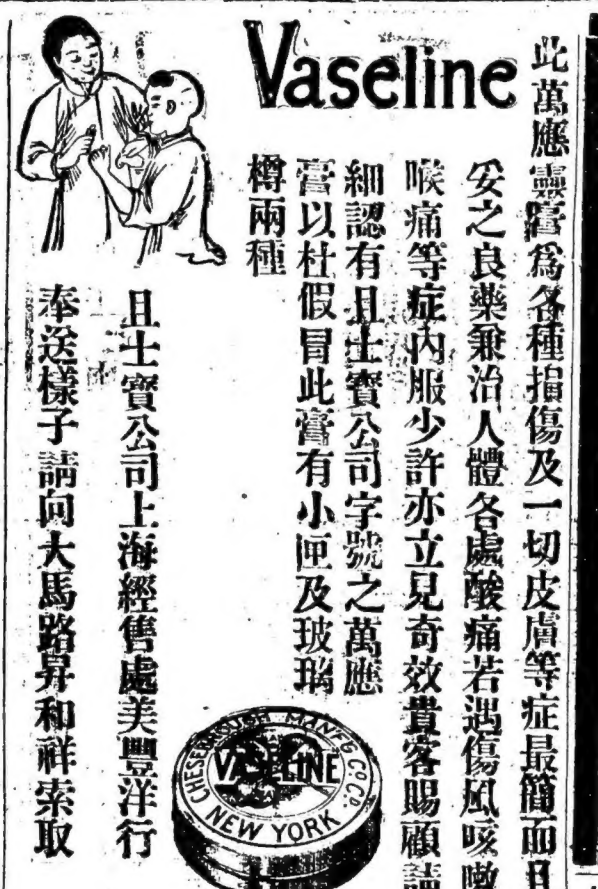 Vaseline
此萬應靈膏爲各種損傷及一切皮膚等症最簡而且
妥之良藥兼治人體各處酸痛若遇傷風咳嗽
喉痛等症內服少許亦立見奇效貴客賜顧請
細認有且士寶公司字號之萬應
膏以杜假冒此膏有小匣及玻璃
樽兩種
且士寶公司上海經售處美豐洋行
奉送樣子請向大馬路昇和祥索取
CHESEBROUGH MAN'F'G CO. CD.
VASELINE
NEW YORK